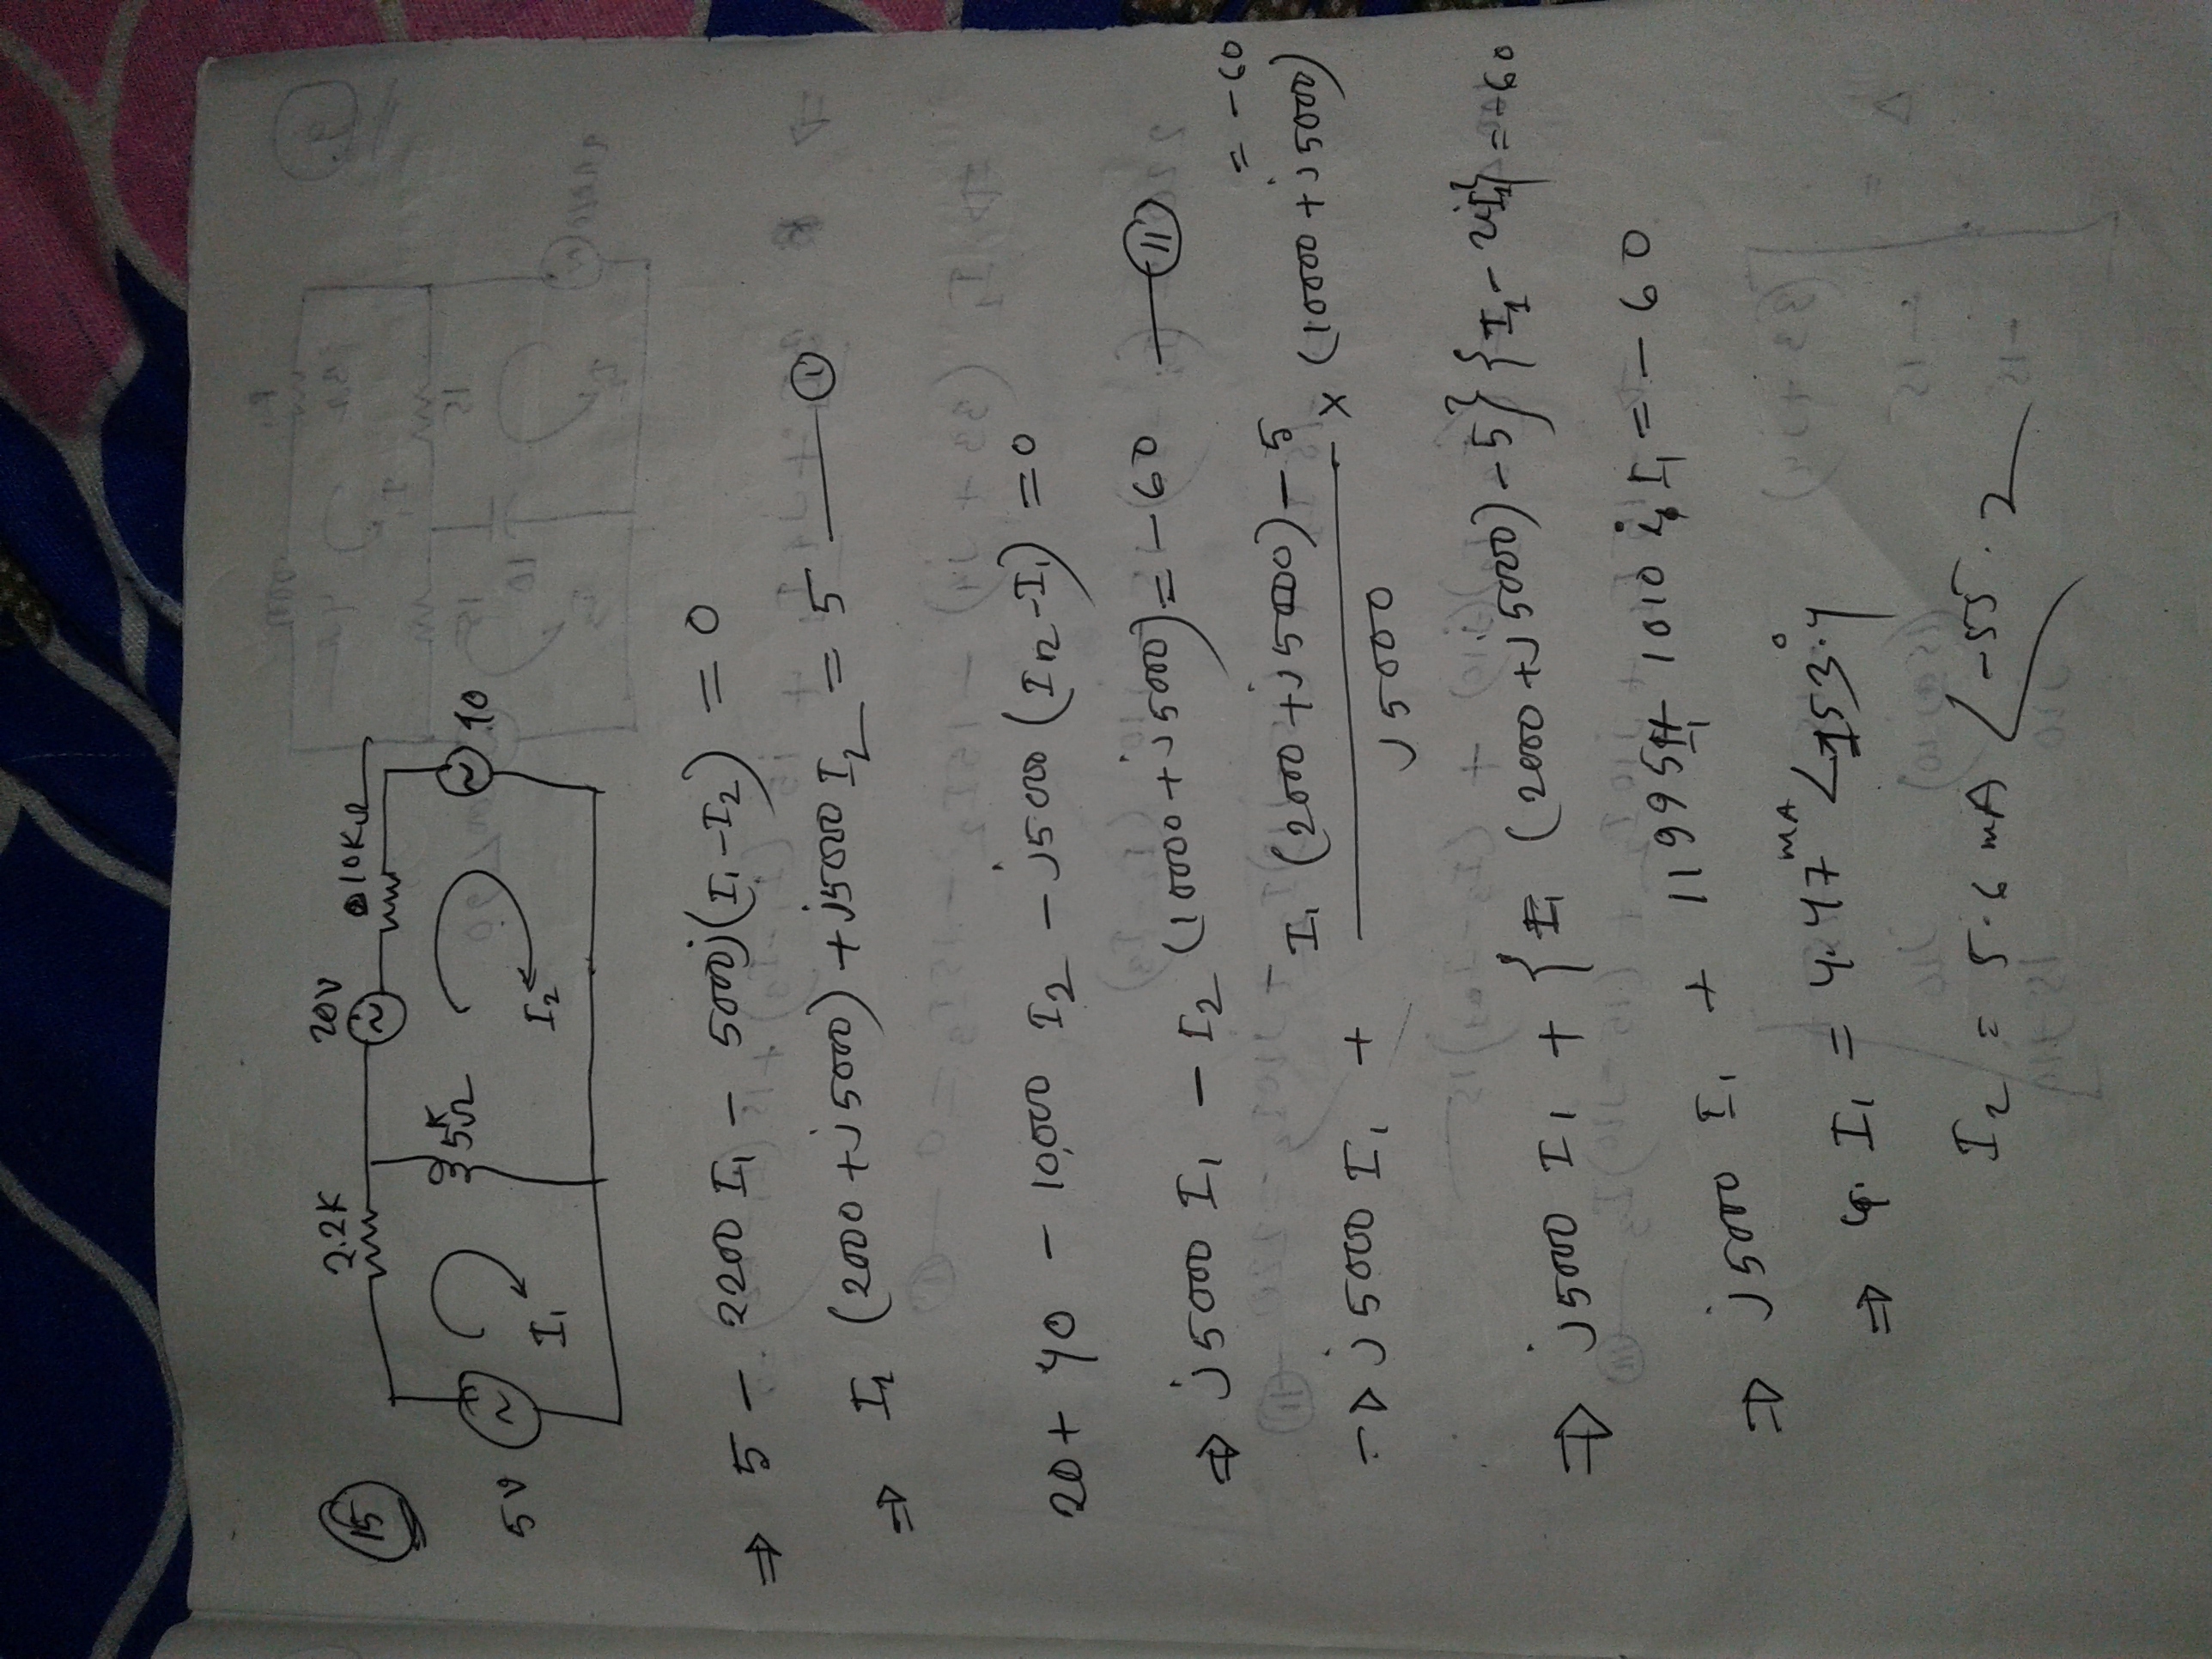 15
2.2K 20V 10KΩ
5V I₁ 5KΩ I₂ 10
⇒ 5 - 2200 I₁ - 5000j(I₁-I₂) = 0
⇒ I₁ (2000 + j5000) + j5000 I₂ = 5 — I
20 + 40 - 10,000 I₂ - j5000 (I₂-I₁) = 0
⇒ j5000 I₁ - I₂ (10000 + j5000) = -60 — II
→ j5000 I₁ + I₁ (2000 + j5000) - 5 / j5000 × (10000 + j5000) = -60
⇒ j5000 I₁ + {I₁ (2000 + j5000) - 5} {I₁ - 2iI₁} = -60
⇒ j5000 I₁ + 11995I₁ + 1010 i I₁ = -60
⇒ I₁ = 4.47 mA ∠153.4°
I₂ = 5.6 mA ∠-55.2